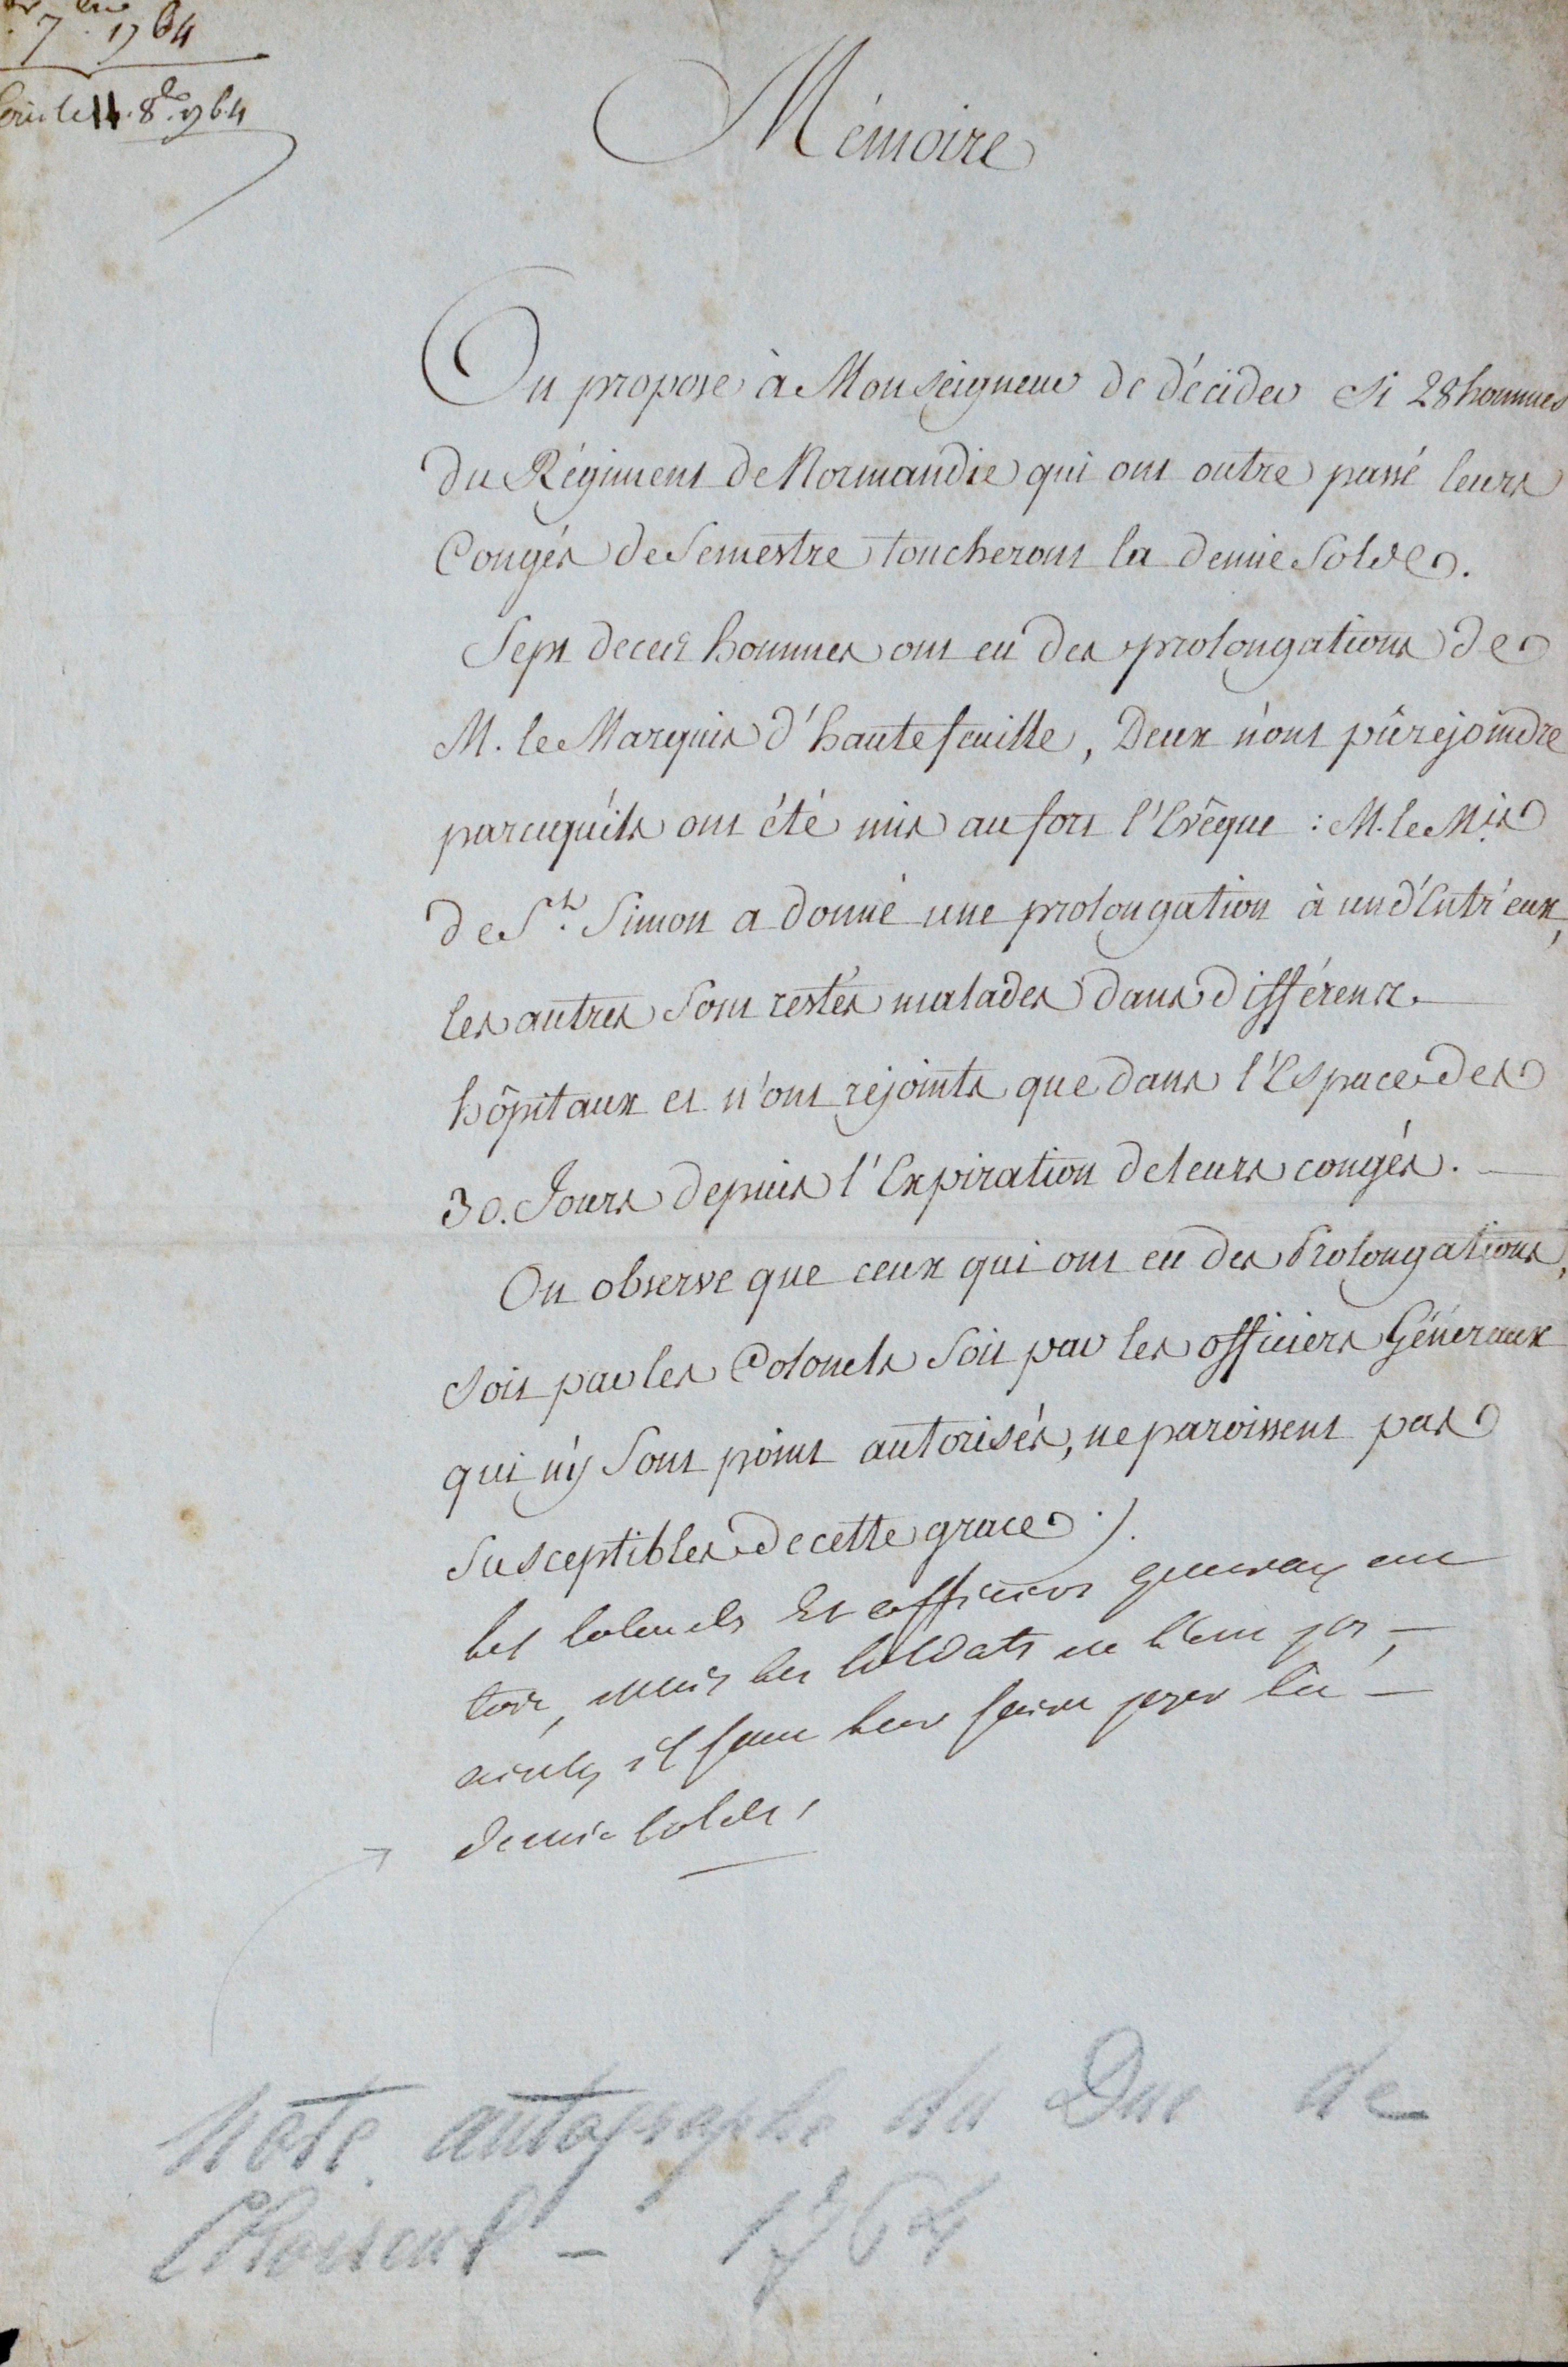 7bre 1764
Ecrit le 14. 8bre 1764
Mémoire
On propose à Monseigneur de décider si 28 hommes
du Régiment de Normandie qui ont outre passé leurs
Congés de Semestre toucheront la demie Solde.
Sept de ceux hommes ont eu des prolongations de
M. le Marquis d'hautefeuille, Deux n'ont pû rejoindre
parcequ'ils ont été mis au fort l'Evêque : M. le Mis
de St. Simon a donné une prolongation à un d'Entr'eux,
les autres sont restés malades dans différents
hôpitaux et n'ont rejoints que dans l'Espace des
30. Jours depuis l'Expiration de leurs congés.
On observe que ceux qui ont eu des Prolongations,
soit par les Colonels soit par les officiers Généraux
qui n'y sont point autorisés, ne paroissent pas
susceptibles de cette grace ./.
les colonels Et officiers generaux ont
tort, mais les soldats ne l'ont pas,
ainsy il faut leur faire payer la
demie solde,
Note autographe du Duc de
Choiseul - 1764